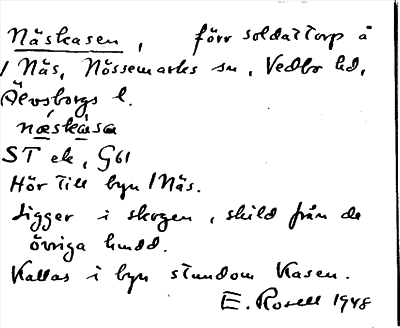 Näskasen, förr soldattorp å
1 Näs, Nössemarks sn, Vedbo hd,
Älvsborgs l.
næskása
ST ek, G61
Hör till byn 1 Näs.
Ligger i skogen, skild från de
övriga hmdd.
Kallas i byn stundom Kasen.
E. Rosell 1948